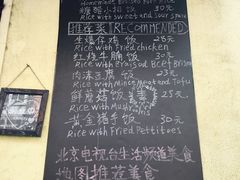 Rice with sweet and sour spare
推荐类 RECOMMENDED
28元
Rice with Fried chicken
红烧牛腩饭 30元
Rice with Braised Beef Brisket
肉沫豆腐 23元
Rice with Mince Meat and Tofu
鲜蘑菇饭 25元
Rice with Mushrooms
黄金猪手饭 30元
Rice with Fried Pettitoes
北京电视台生活频道美食
地图推荐美食